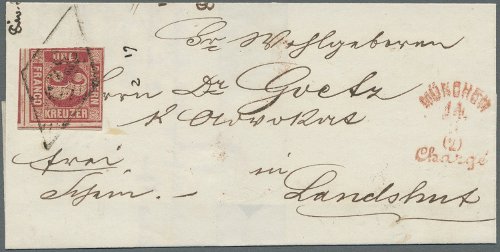 Sr Wohlgeboren
Herrn Dr Goetz
k Advokat
in
Landshut
frei
Schein.
FRANCO
9
KREUZER
17
2
8
MÜNCHEN
14
(2)
Chargé